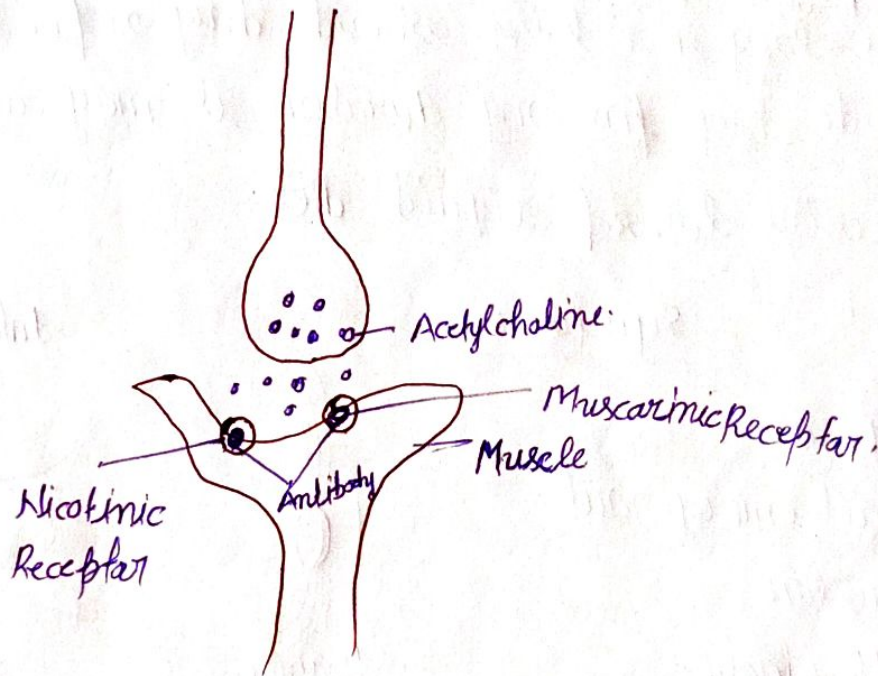 Acetylcholine.
Muscarinic Receptor.
Muscle
Antibody
Nicotinic
Receptor